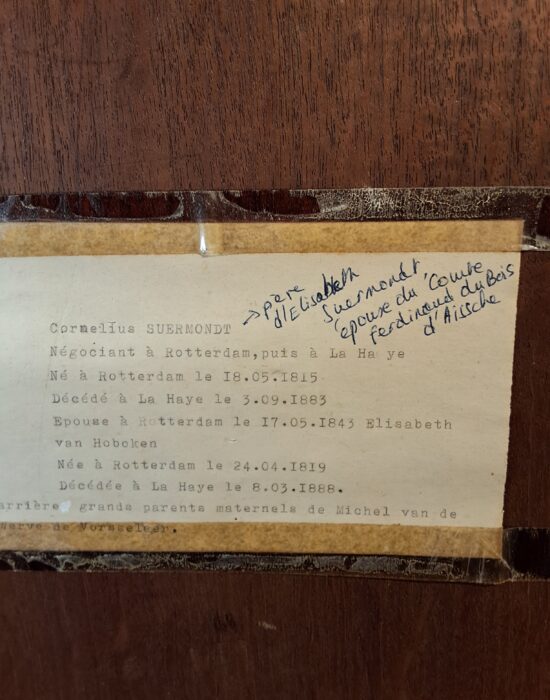 → père
d'Elisabeth
Suermondt
épouse du Comte
ferdinand du Bois
d'Aissche
Cornelius SUERMONDT
Négociant à Rotterdam,puis à La Ha ye
Né à Rotterdam le I8.05.I8I5
Décédé à La Haye le 3.09.I883
Epouse à Rotterdam le I7.05.I843 Elisabeth
van Hoboken
Née à Rotterdam le 24.04.I8I9
Décédée à La Haye le 8.03.I888.
arrière grands parents maternels de Michel van de
Werve de Vorsseleer.